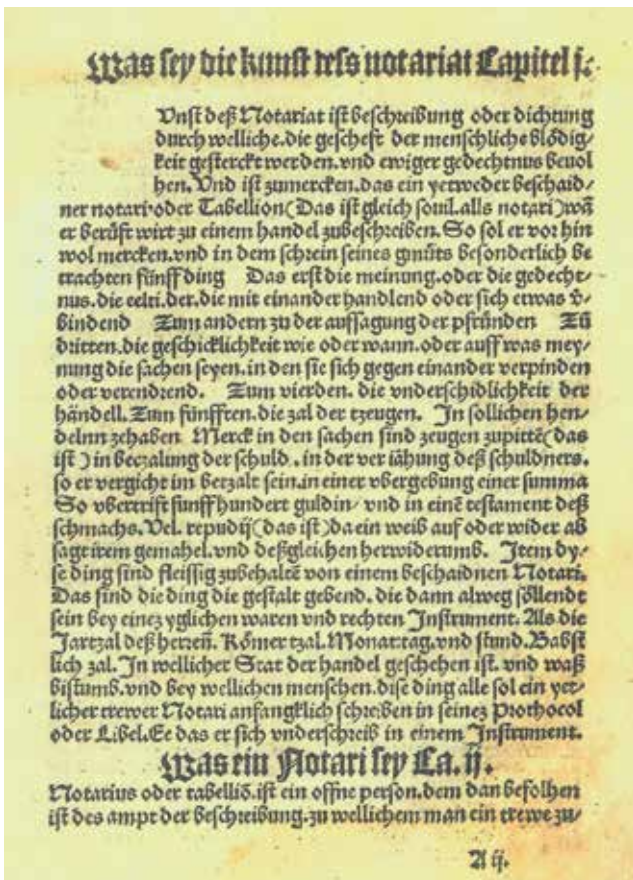 Was sey die kunst dess notariat Capitel j.
Vnst deß Notariat ist beschreibung oder dichtung
durch welliche.die gescheft der menschliche blödig/
keit gesterckt werden.vnd ewiger gedechtnus beuol
hen.Vnd ist zumercken.das ein yetweder beschaid/
ner notari·oder Tabellion(Das ist gleich souil.alls notari)wā
er berůft wirt zu einem handel zubeschreiben.So sol er vor hin
wol mercken.vnd in dem schrein seines gmůts besonderlich be
trachten fünff ding Das erst die meinung.oder die gedecht/
nus.die eelti.der.die mit einander handlend oder sich etwas v̄-
bindend Zum andern zu der aufsagung der pfründen Zū
dritten.die geschicklichkeit wie oder wann.oder auff was mey/
nung die sachen seyen.in den sie sich gegen einander verpinden
oder verendrend. Zum vierden. die vnderschidlichkeit der
händell.Zum fünfften.die zal der tzeugen. In sollichen hen/
delnn zehaben Merck in den sachen sind zeugen zupittē(das
ist ) in beczalung der schuld . in der ver iähung deß schuldners.
so er vergicht im betzalt sein.in einer vbergebung einer summa
So vbertrift funffhundert guldin/ vnd in einē testament deß
schmachs.Vel. repudij(das ist )da ein weib auf oder wider ab
sagt irem gemahel.vnd deßgleichen herwiderumb. Item dy/
se ding sind fleissig zubehaltē von einem beschaidnen Notari.
Das sind die ding die gestalt gebend. die dann alweg söllendt
sein bey einez yglichen waren vnd rechten Instrument. Als die
Jartzal deß herren̄. Römer tzal.Monat:tag.vnd stund.Babst
lich zal. In wellicher Stat der handel geschehen ist. vnd waß
bistumb.vnd bey wellichen menschen.dise ding alle sol ein yet/
licher trewer Notari anfangklich schreiben in seinez Prothocol
oder Libel.Ee das er sich vnderschreib in einem Instrument.
Was ein Notari sey Ca. ij.
Notarius oder tabelliō.ist ein offne person.dem dan befolhen
ist des ampt der beschreibung.zu wellichem man ein trewe zu/
A ij.